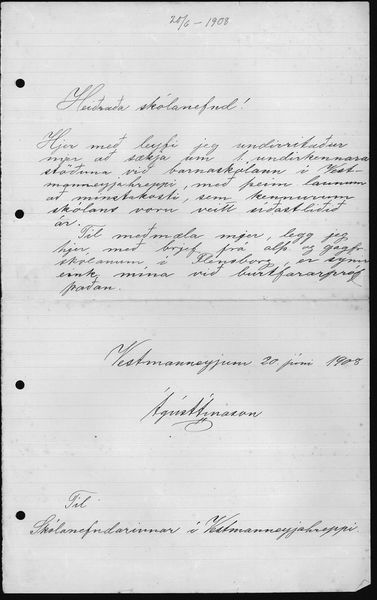 20/6 - 1908
Heiðraða skólanefnd!
Hjer með leyfi jeg undirritaður
mjer að sækja um 1. undirkennara
stöðuna við barnaskólann í Vest-
mannneyjahreppi, með þeim launum
að minstakosti, sem kennurum
skólans voru veitt síðastliðið
ár.
Til meðmæla mjer, legg jeg
hjer með brjef frá alþ. og gagfr.
skólanum í Flensborg, er sýnir
eink. mína við burtfararpróf
þaðan.
Vestmanneyjum 20. júní 1908
Ágúst Árnason
Til
Skólanefndarinnar í Vestmanneyjahreppi.